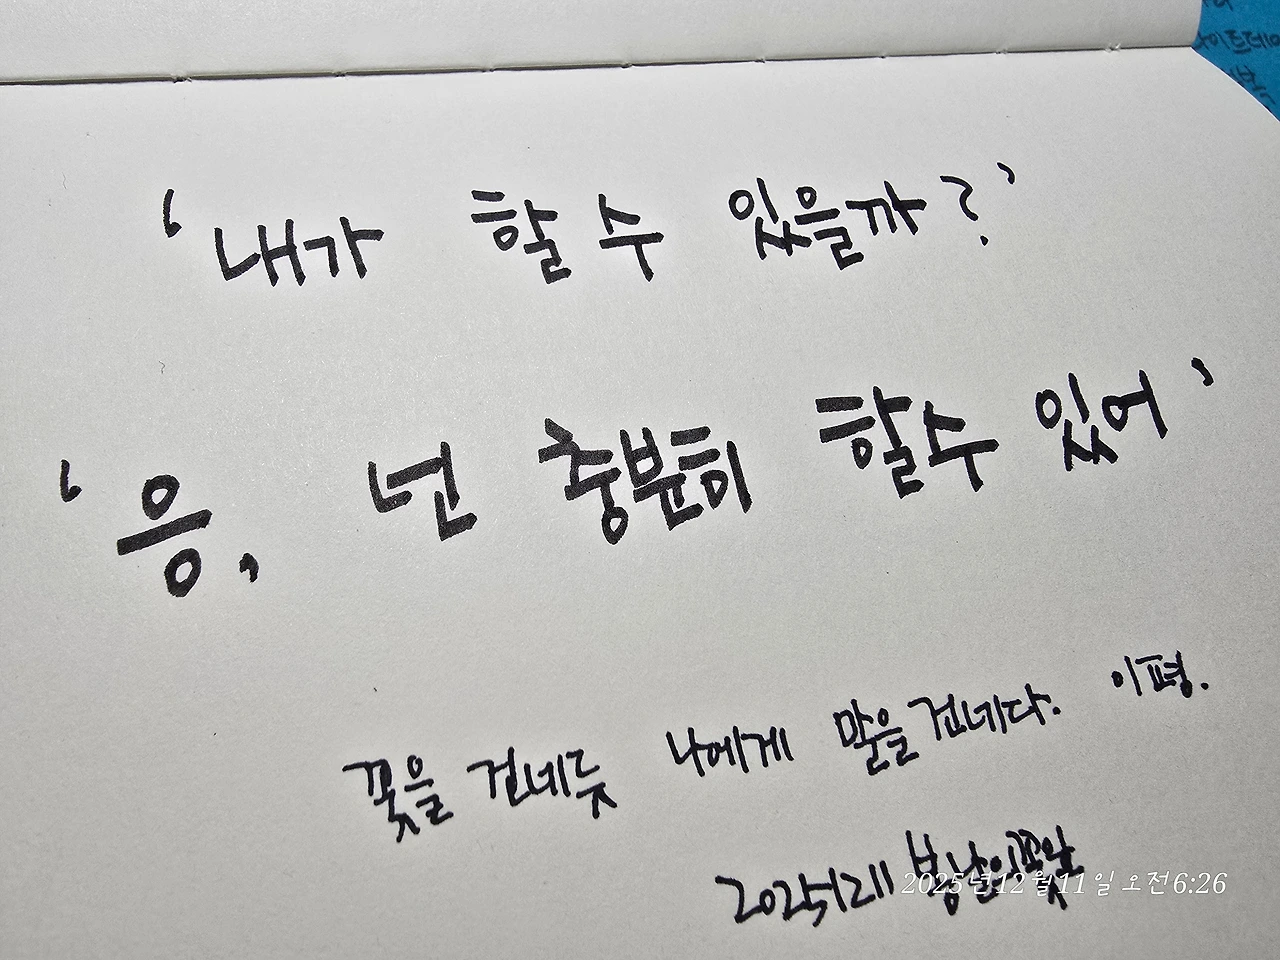 '내가 할 수 있을까?'
'응, 넌 충분히 할수 있어'
꽃을 건네듯 나에게 말을 건네다. 이평.
20251211
2025년12월11일 오전6:26